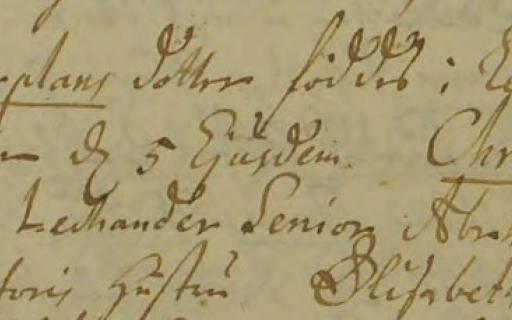 plans dotter föddes i
d 5 Ejusdem. Chr
Lechander Senior Abra
toris hustru Elisabeth